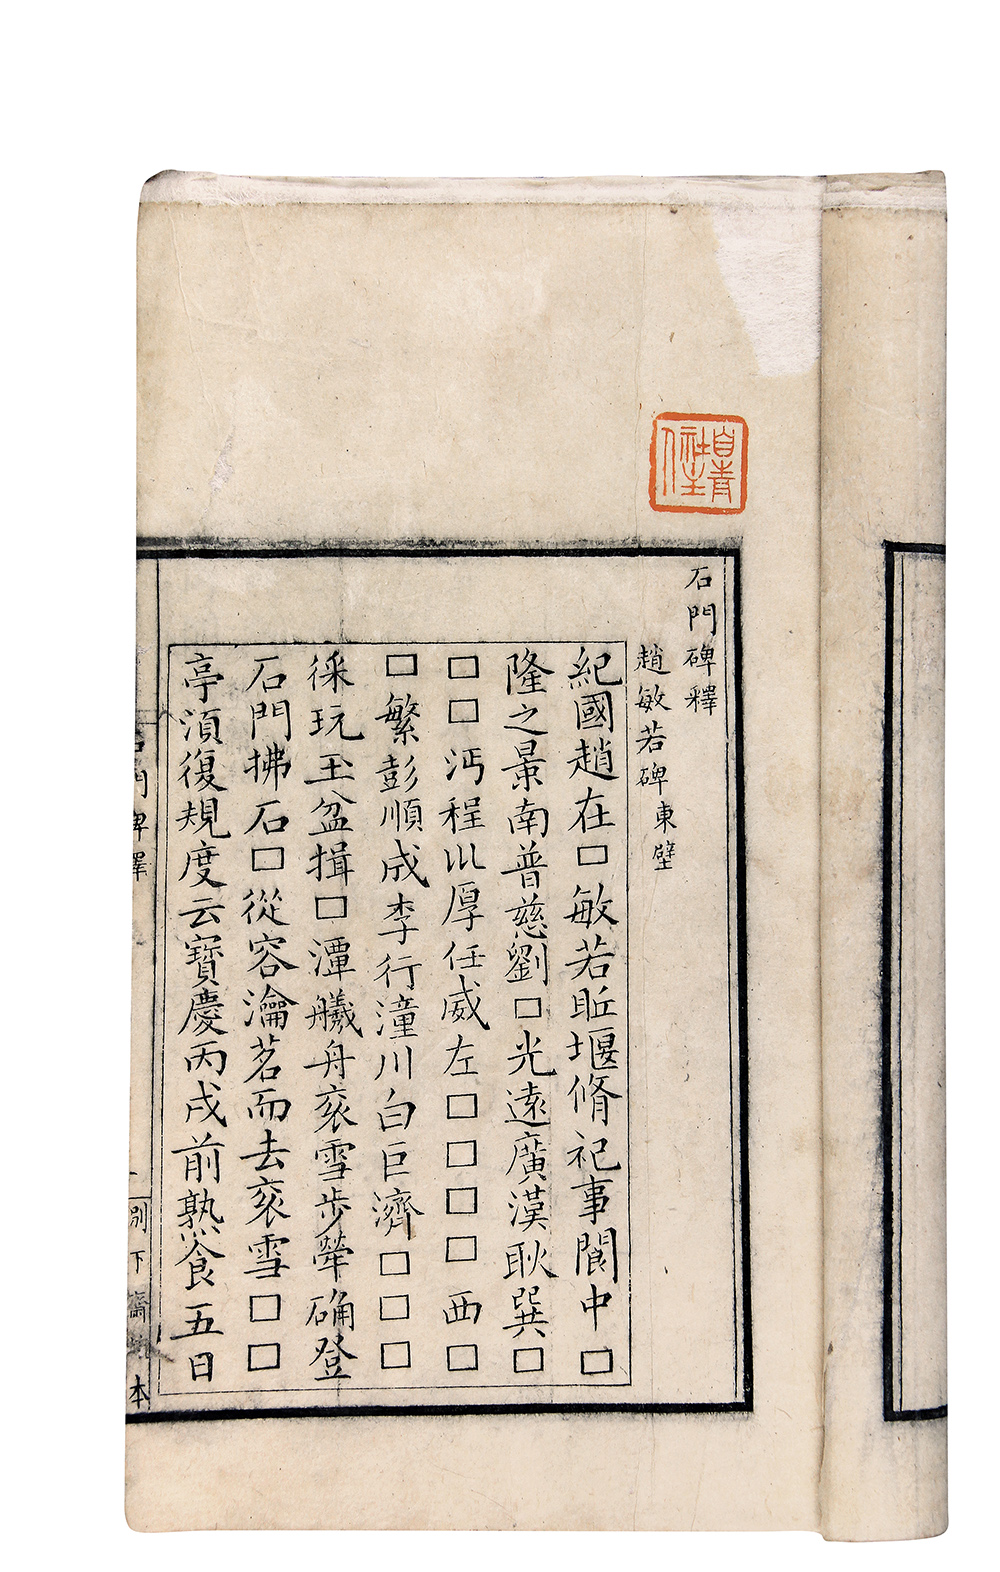 石門碑釋
趙敏若碑東壁
紀國趙在□敏若𥅆堰脩祀事閬中□
隆之景南普慈劉□光遠廣漢耿巽□
□□沔程㕥厚任威左□□□□西□
□繁彭順成李行潼川白巨濟□□□
徠玩玉盆揖□潭艤舟衮雪步犖确登
石門拂石□從容瀹茗而去衮雪□□
亭湏復規度云寶慶丙戌前熟食五日
石門碑釋
別下齋 本